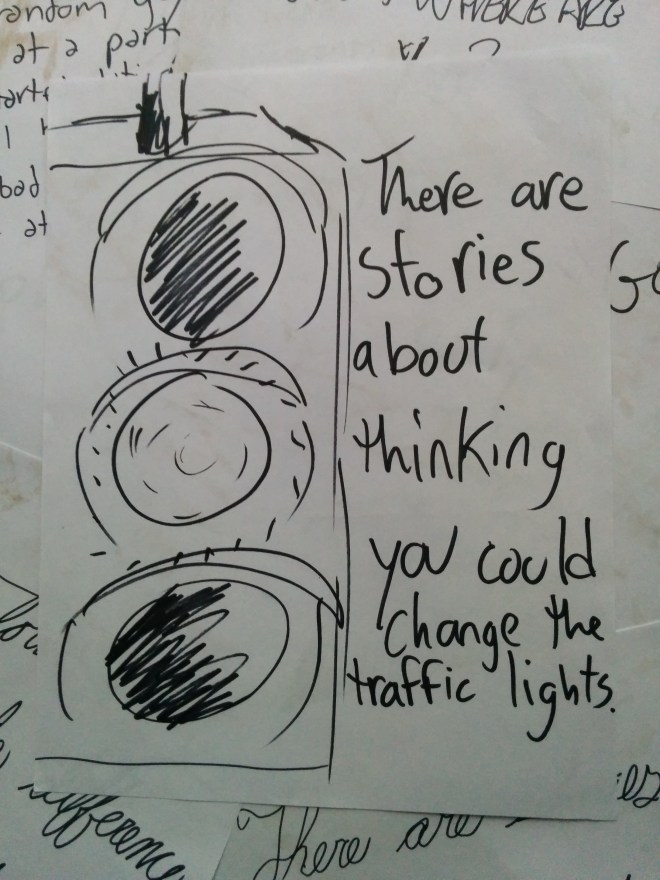 random
at a part
WHERE ARE
?
bad
at
There are
stories
about
thinking
you could
change the
traffic lights.
Go
difference
There are